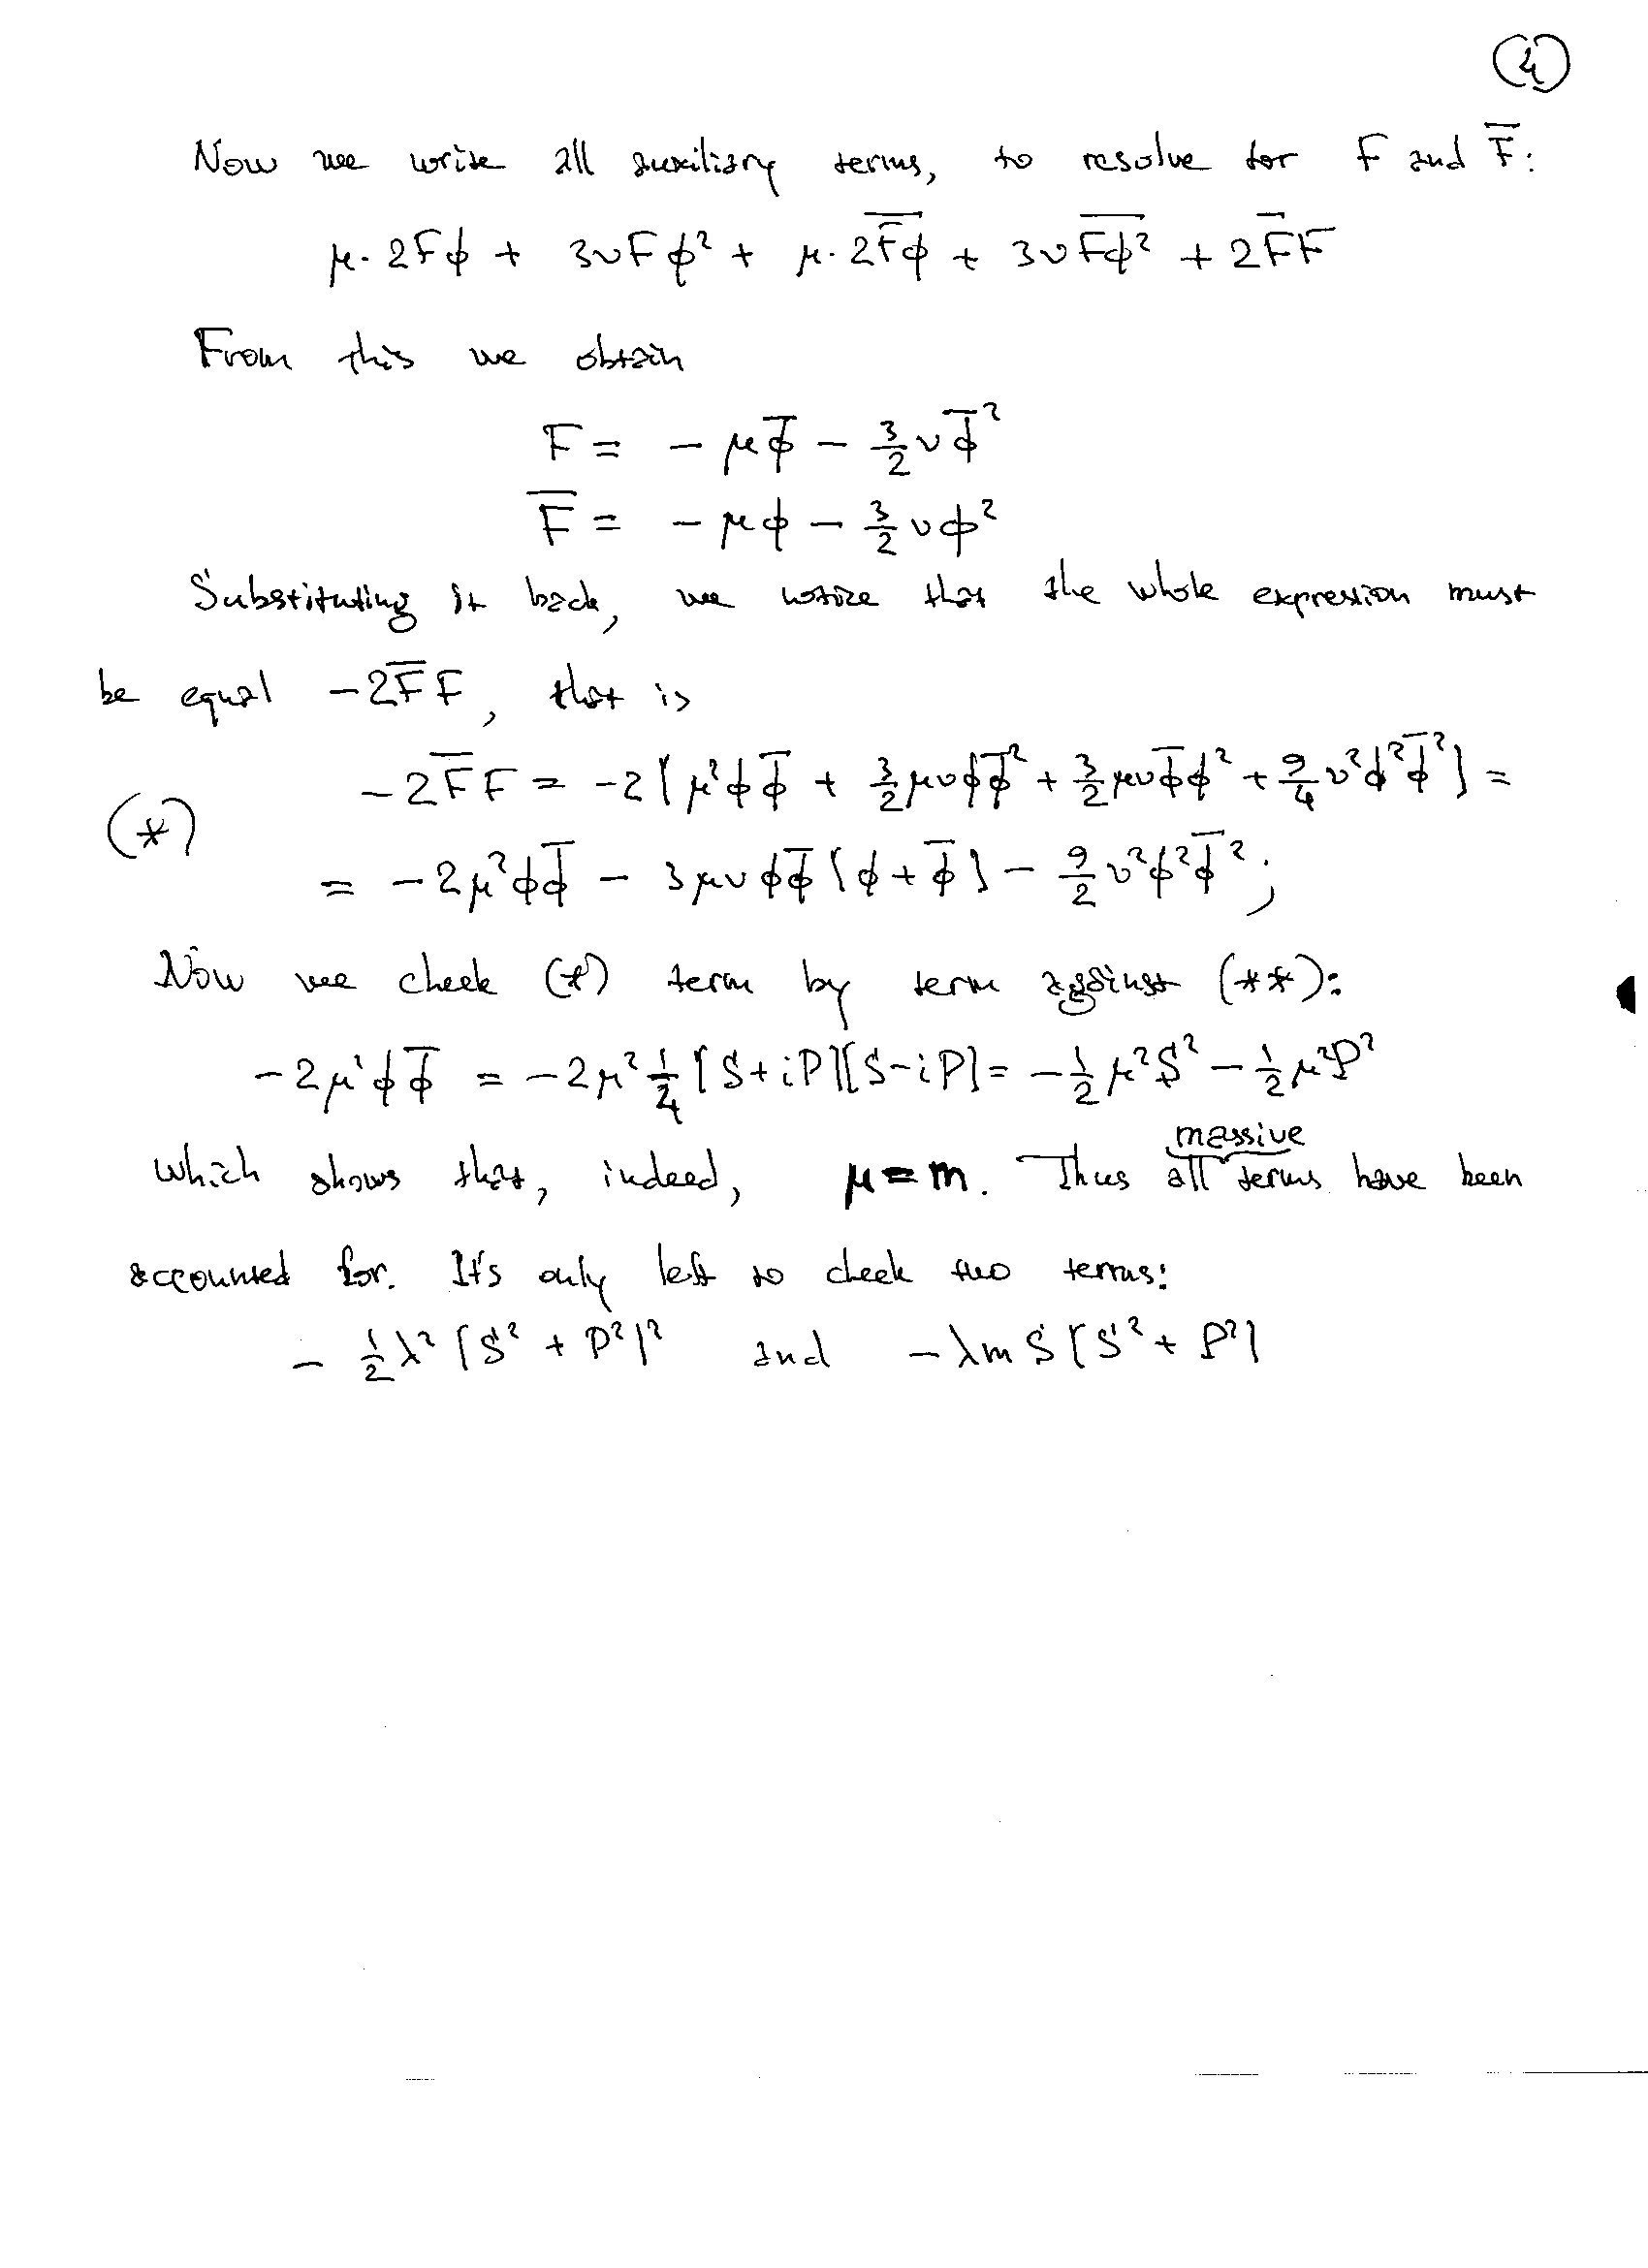 4
Now we write all auxiliary terms, to resolve for F and F̅:
μ·2Fϕ + 3νFϕ² + μ·2F̅ϕ̅ + 3νF̅ϕ̅² + 2F̅F
From this we obtain
F = − μϕ̅ − 3/2 νϕ̅²
F̅ = − μϕ − 3/2 νϕ²
Substituting it back, we notice that the whole expression must
be equal −2F̅F, that is
−2F̅F = −2[μ²ϕϕ̅ + 3/2 μνϕϕ̅² + 3/2 μνϕ̅ϕ² + 9/4 ν²ϕ²ϕ̅²] =
(*)
= −2μ²ϕϕ̅ − 3μνϕϕ̅[ϕ+ϕ̅] − 9/2 ν²ϕ²ϕ̅²;
Now we check (*) term by term against (**):
−2μ²ϕϕ̅ = −2μ² 1/4 [S+iP][S−iP] = −1/2 μ²S² − 1/2 μ²P²
massive
which shows that, indeed, μ=m. Thus all terms have been
accounted for. It's only left to check two terms:
− 1/2 λ² [S² + P²]² and −λmS[S² + P²]